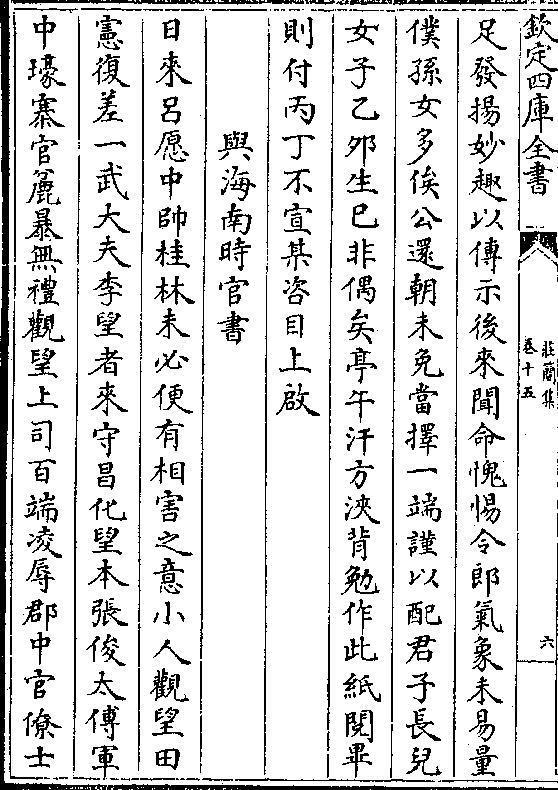 欽定四庫全書
莊簡集
卷十五
六
足發揚妙趣以傳示後來聞命愧惕令郎氣象未易量
僕孫女多俟公還朝未免當擇一端謹以配君子長兒
女子乙夘生巳非偶矣亭午汗方浹背勉作此紙閱畢
則付丙丁不宣某咨目上啟
與海南時官書
日來呂愿中帥桂林未必便有相害之意小人觀望田
憲復差一武大夫李望者來守昌化望本張俊太傅軍
中壕寨官麄暴無禮觀望上司百端凌辱郡中官僚士